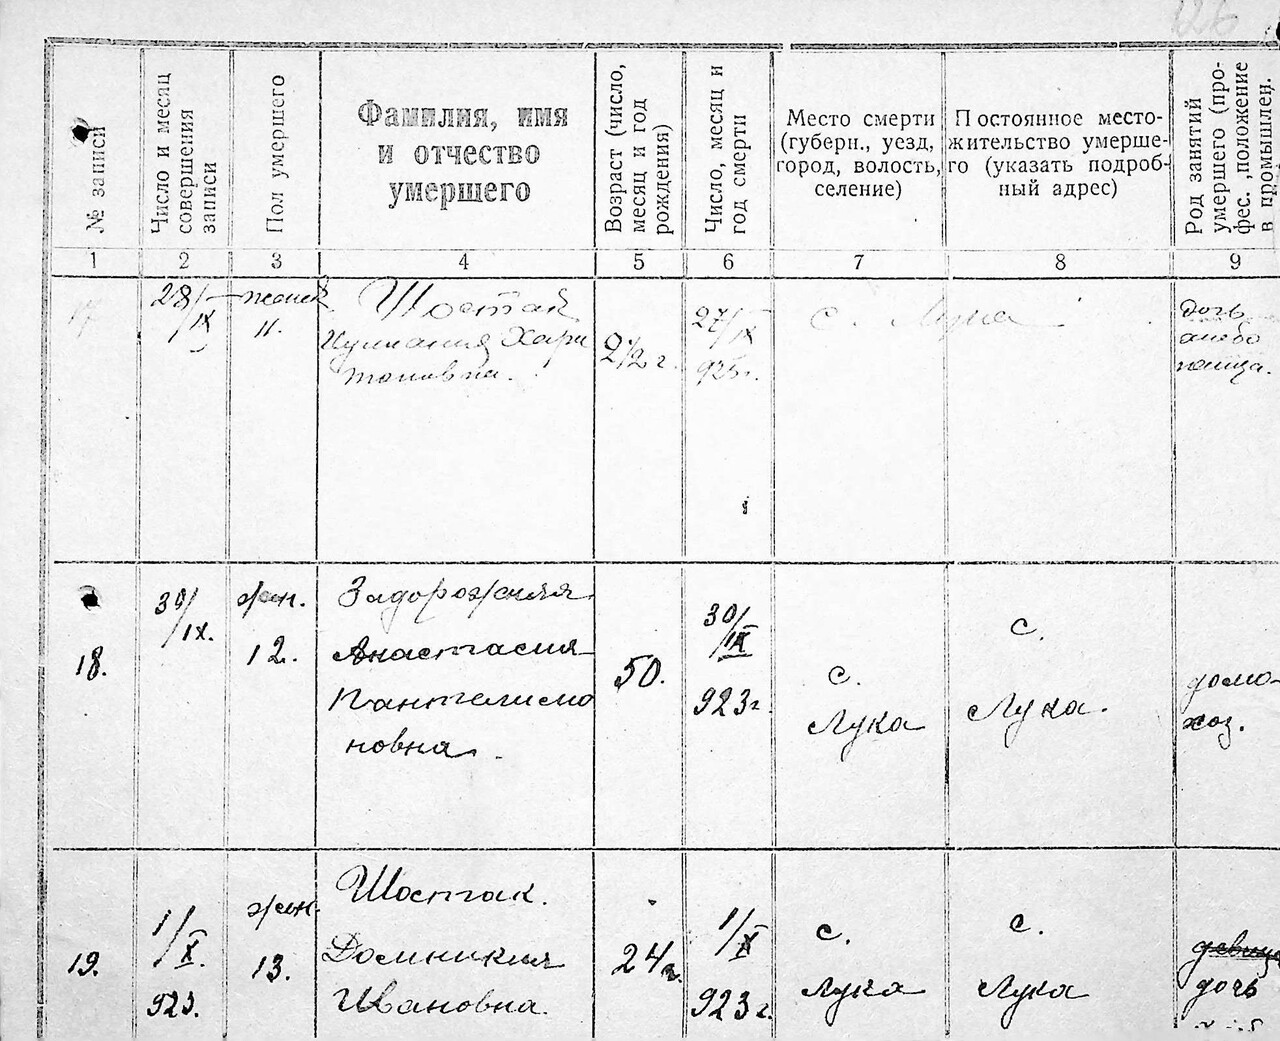 № записи
Число и месяц
совершения
записи
Пол умершего
Фамилия, имя
и отчество
умершего
Возраст (число,
месяц и год
рождения)
Число, месяц и
год смерти
Место смерти
(губерн., уезд,
город, волость,
селение)
Постоянное место-
жительство умерше-
го (указать подроб-
ный адрес)
Род занятий
умершего (про-
фес., положение
в промышлен.
1 2 3 4 5 6 7 8 9
17
28/IX
11.
Хари
тоновна.
2 1/2 г.
27/IX
с. Лука
дочь
хлебо
пашца.
18.
30/IX.
жен.
12.
Задорожная
Анастасия
Пантелимо
новна.
50.
30/IX
923г.
с.
Лука
с.
Лука.
домо-
хоз.
19.
1/X.
923.
жен.
13.
Шостак.
Домникия
Ивановна.
24г.
1/X
923г.
с.
Лука
с.
Лука
дочь